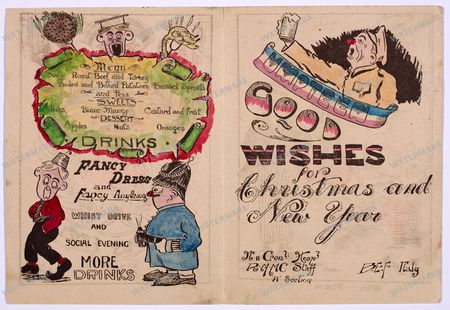 Menu
Roast Beef and Turkey
Boiled and Baked Potatoes
Brussel Sprouts
and Peas
SWEETS
Blanc-Mange
Custard and Fruit
DESSERT
Apples Nuts Oranges
DRINKS
FANCY
DRESS
and
Fancy Anything
WHIST DRIVE
AND
SOCIAL EVENING
MORE
DRINKS
UMPTEEN
GOOD
WISHES
for
Christmas and
New Year
A Section
B.E.F Italy